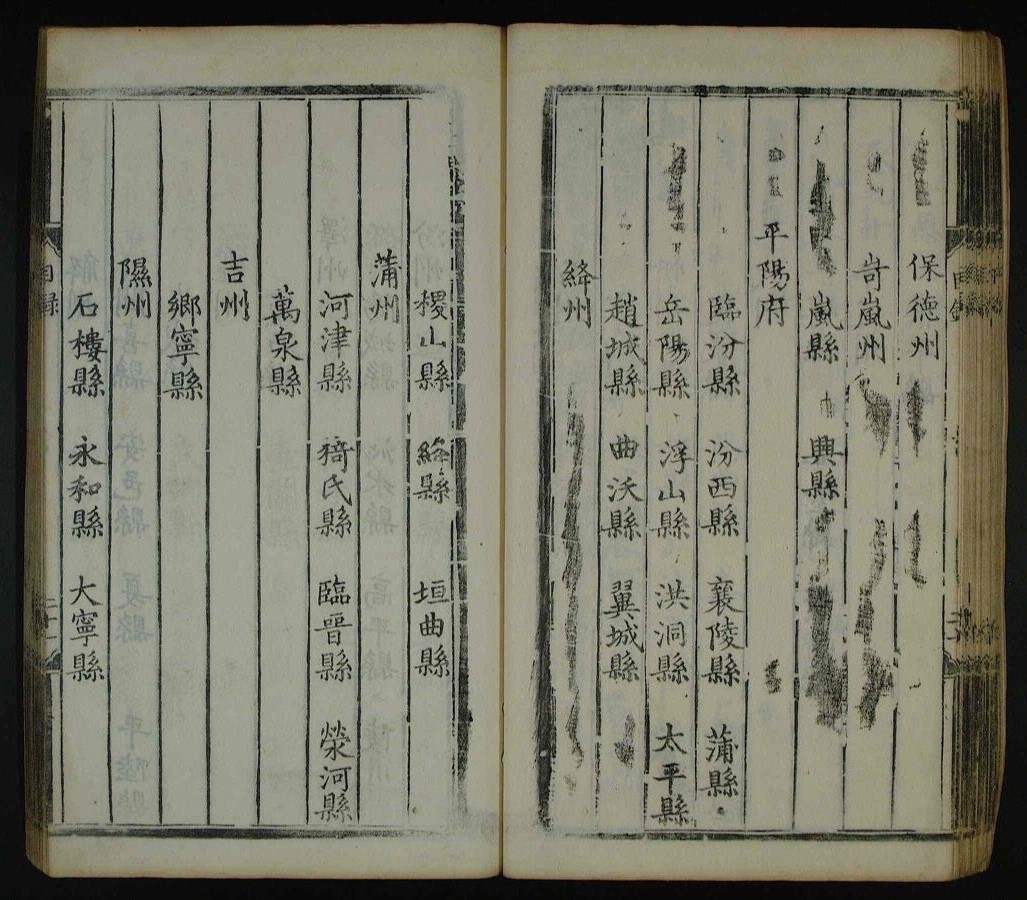 保德州
岢嵐州
嵐縣 興縣
平陽府
臨汾縣 汾西縣 襄陵縣 蒲縣
岳陽縣 浮山縣 洪洞縣 太平縣
趙城縣 曲沃縣 翼城縣
絳州
稷山縣 絳縣 垣曲縣
蒲州
河津縣 猗氏縣 臨晉縣 滎河縣
萬泉縣
吉州
鄉寧縣
隰州
石樓縣 永和縣 大寧縣
目錄